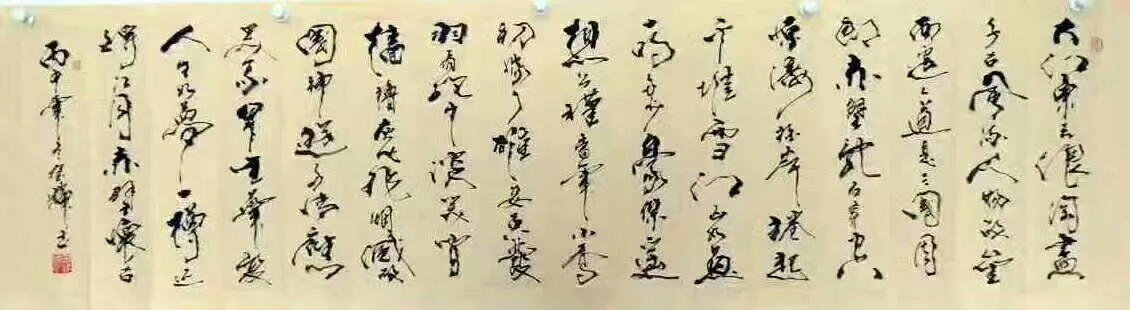 大江東去浪淘盡
千古風流人物故壘
西邊人道是三國周
郎赤壁乱石穿空
驚濤拍岸捲起
千堆雪江山如畫
一時多少豪傑遙
想公瑾當年小喬
初嫁了雄姿英發
羽扇綸巾談笑間
檣櫓灰飛烟滅故
國神遊多情應
笑我早生華髮
人生如夢一樽還
酹江月赤壁懷古
丙午年